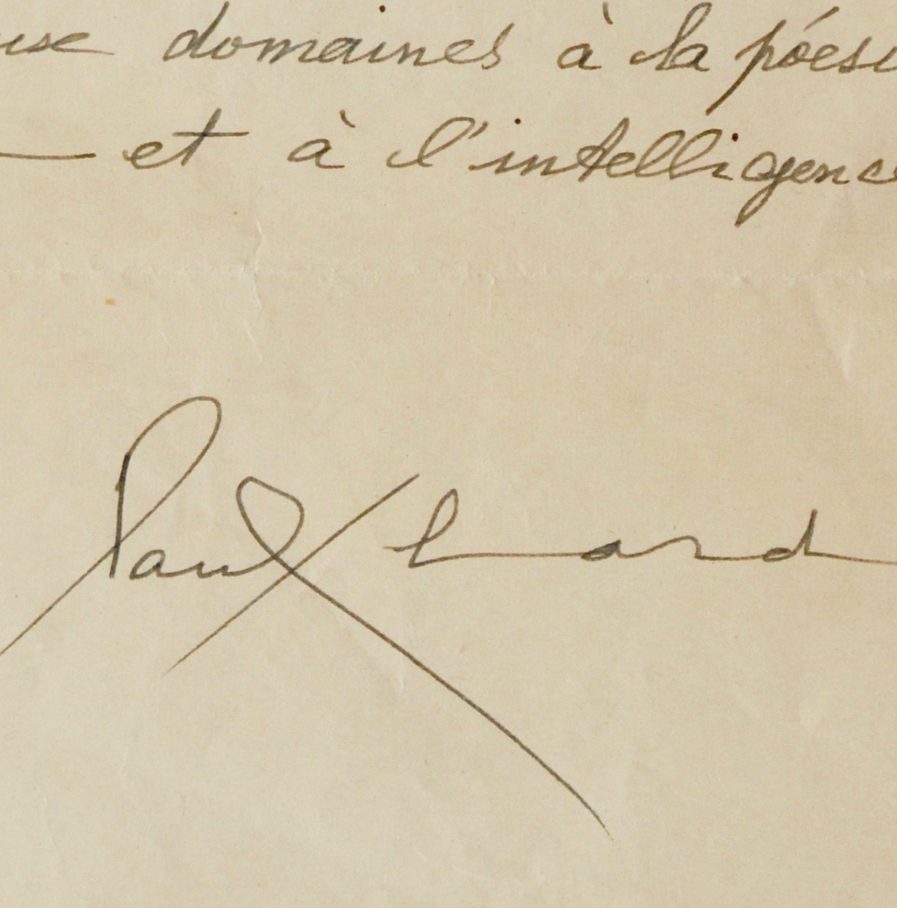 domaines à la póesi
— et à l'intelligence
Paul Eluard